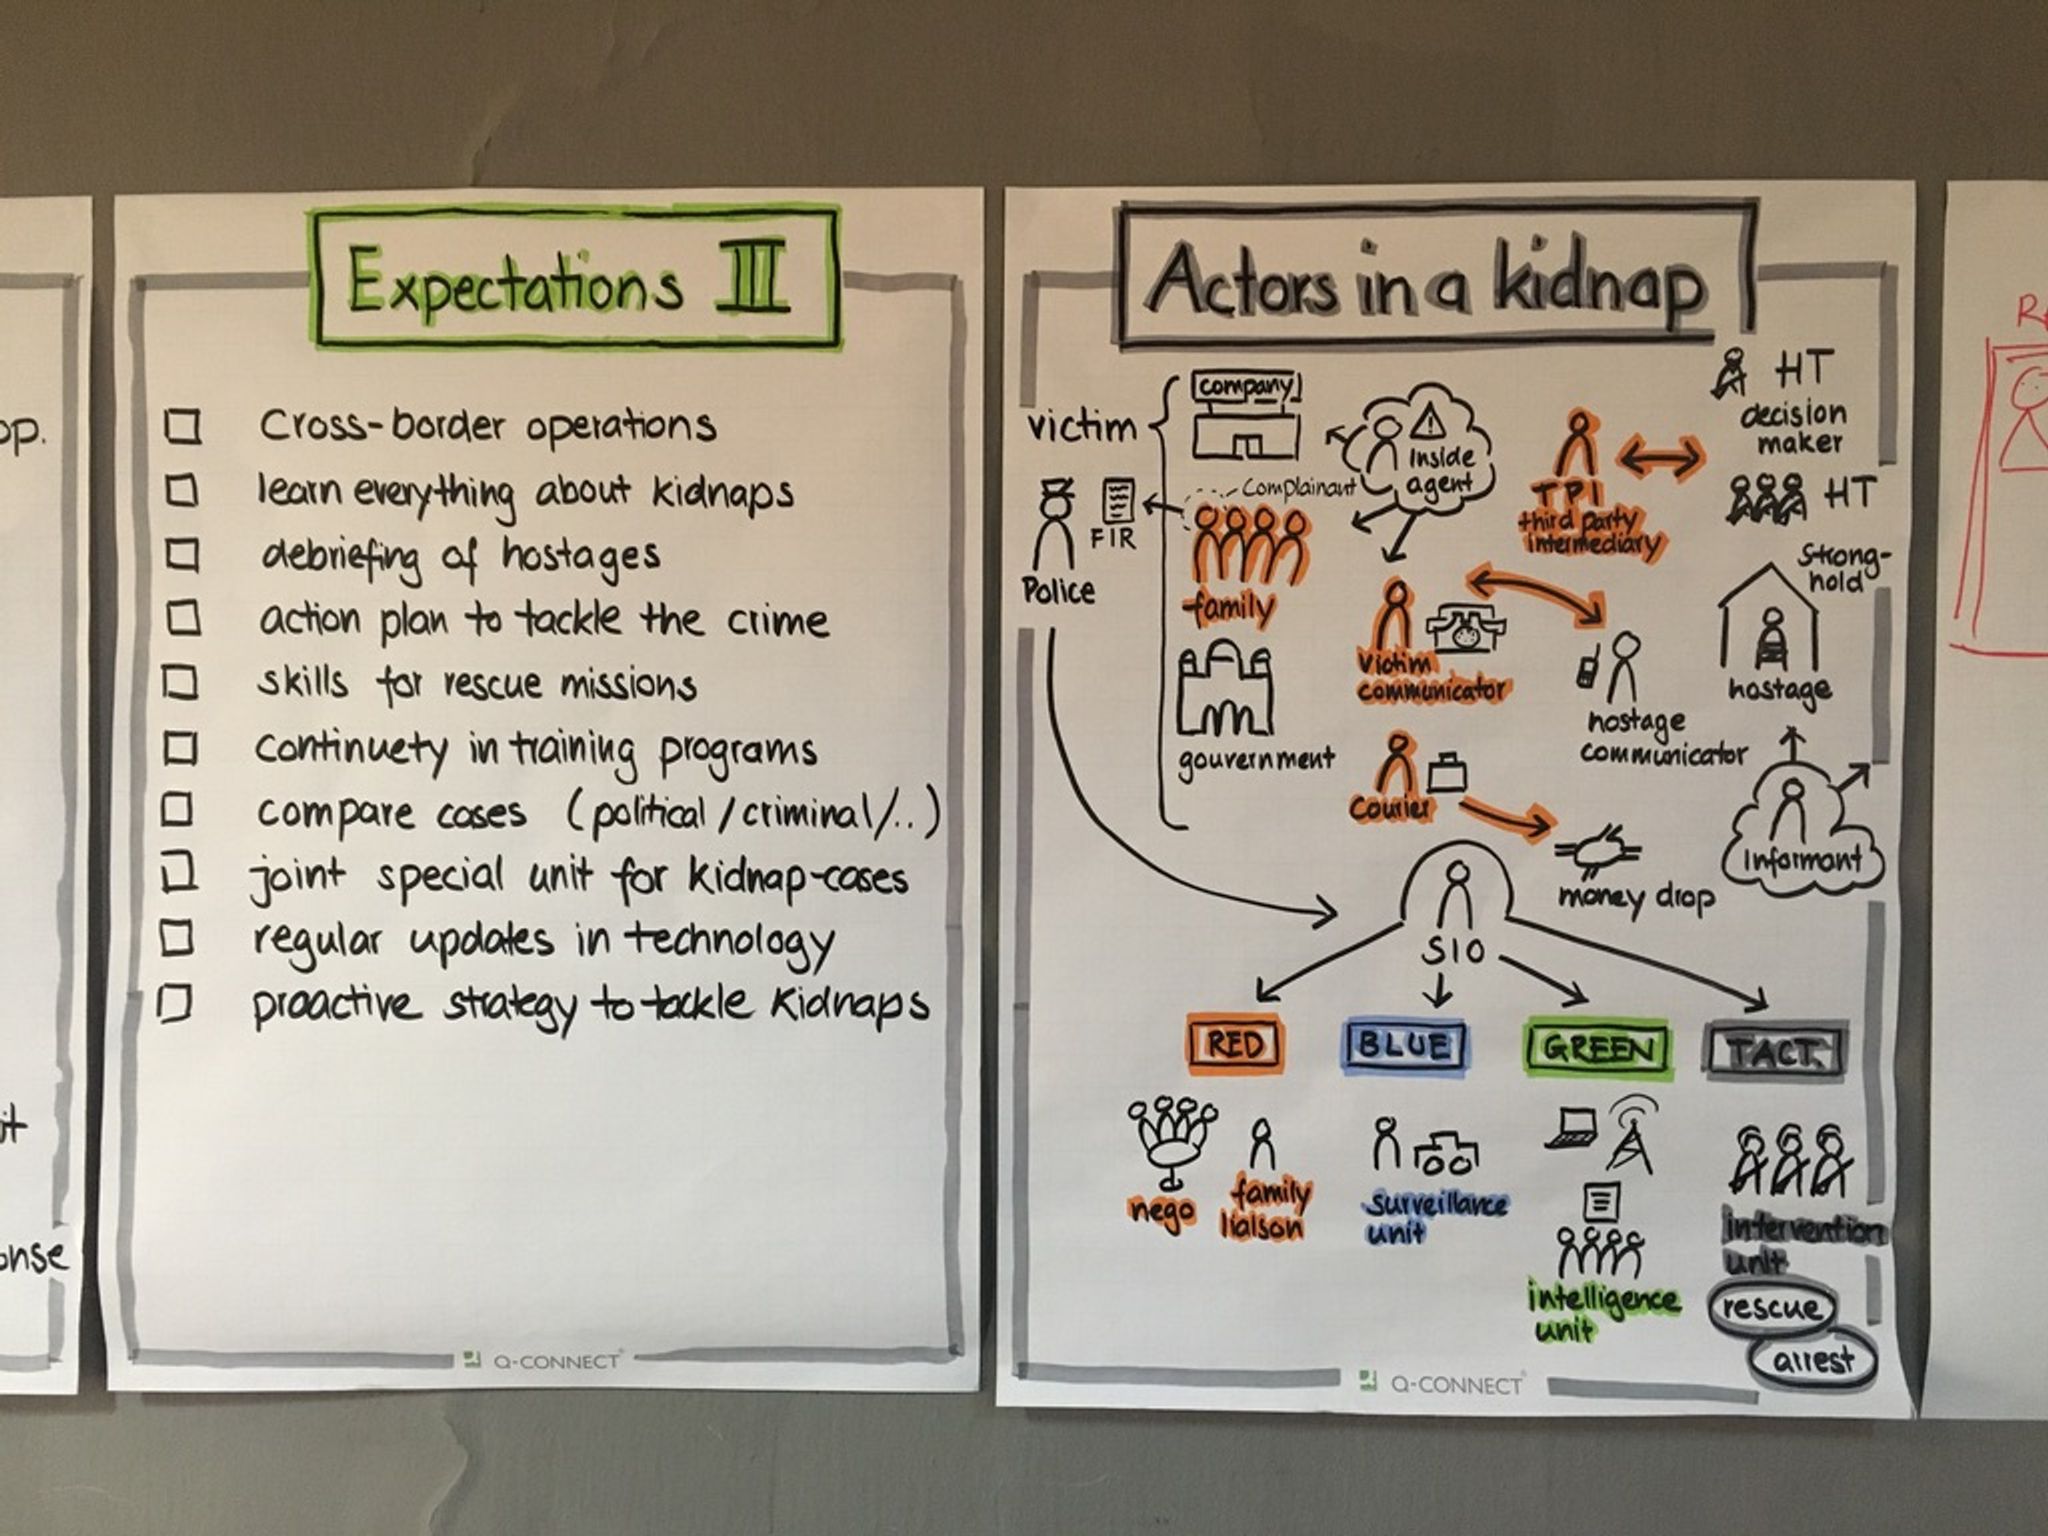 op.
it
onse
Expectations III
Cross-border operations
learn everything about kidnaps
debriefing of hostages
action plan to tackle the crime
skills for rescue missions
continuety in training programs
compare cases (political/criminal/..)
joint special unit for kidnap-cases
regular updates in technology
proactive strategy to tackle kidnaps
Q-CONNECT
Actors in a kidnap
victim
company
Inside
agent
Complainant
FIR
Police
family
gouvernment
TPI
third party
intermediary
HT
decision
maker
HT
Strong-
hold
hostage
victim
communicator
hostage
communicator
Courier
money drop
Informant
SIO
RED
BLUE
GREEN
TACT.
nego
family
liaison
surveillance
unit
intelligence
unit
intervention
unit
rescue
arrest
Q-CONNECT